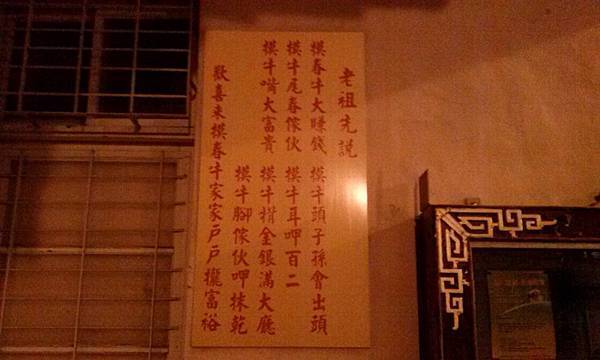 老祖先説
摸春牛大賺錢 摸牛頭子孫會出頭
摸牛尾春傢伙 摸牛耳呷百二
摸牛嘴大富貴 摸牛楷金銀滿大廳
摸牛腳傢伙呷抹乾
歡喜來摸春牛家家戶戶攏富裕